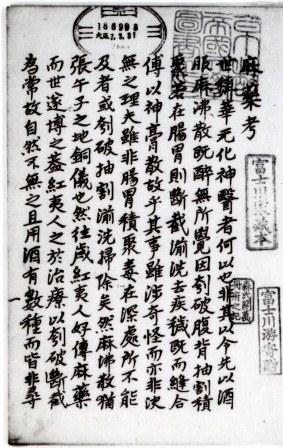 186993
大正7.3.31
麻藥考
世稱華元化神醫者何以也非其以今先以酒
服麻沸散既醉無所覺因刳破腹背抽割積
聚若在腸胃則斷截湔洗去疾穢既而縫合
傅以神膏散故乎其事雖涉奇怪而亦非決
無之理夫雖非腸胃積聚毒在深處所不能
及者或刳破抽割湔洗掃除矣然麻沸散猶
張平子之地銅儀也然往歲紅夷人好傳麻藥
而世遂博之蓋紅夷人之於治療以刳破斷截
為常故自然不無之且用酒有數種而皆非尋
一
富士川家藏本
富士川游寄贈